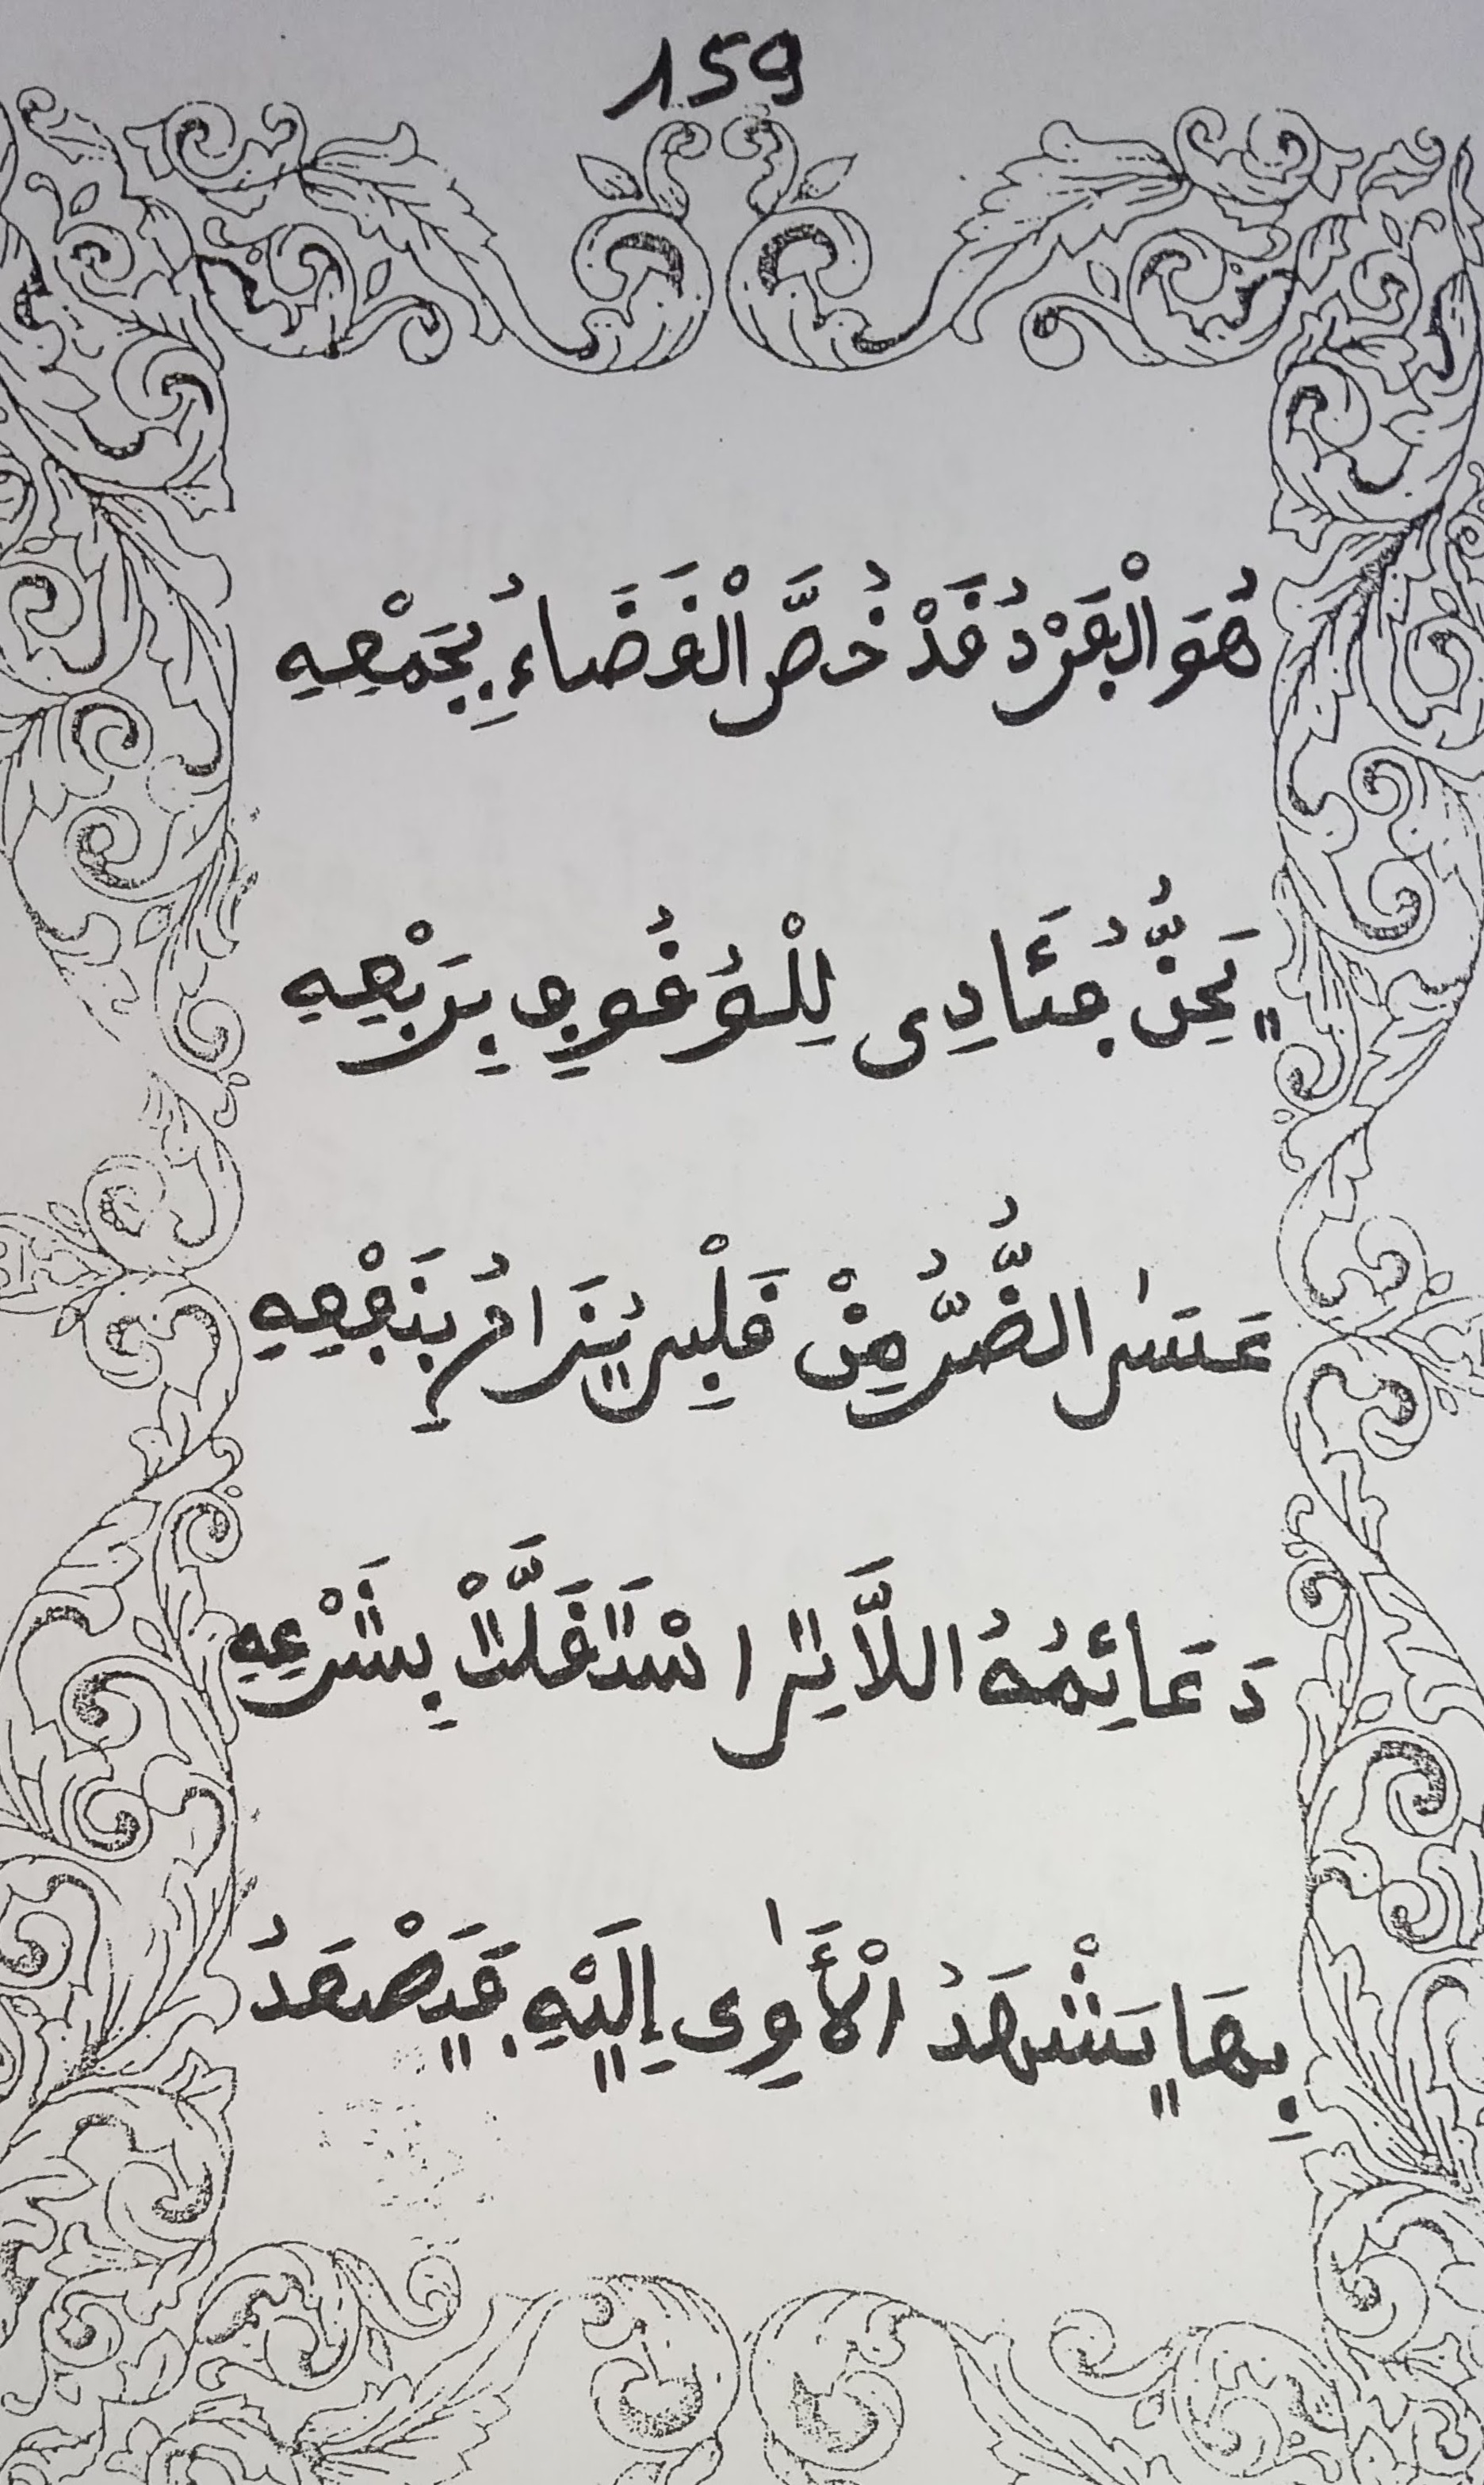 159
هُوَ الْفَرْدُ قَدْ خُصَّ الْقَضَاءُ بِجَمْعِهِ
يَحِنُّ فُؤَادِى لِلْوُقُوفِ بِرَبْعِهِ
عَسَى الضُّرُّ مِنْ قَلْبِى بِنَفْعِهِ
دَعَائِمُهُ اللَّاتِى اسْتَقَلَّتْ بِشَرْعِهِ
بِهَا يَشْهَدُ الْأَٰوِى إِلَيْهِ فَيَصْعَدُ